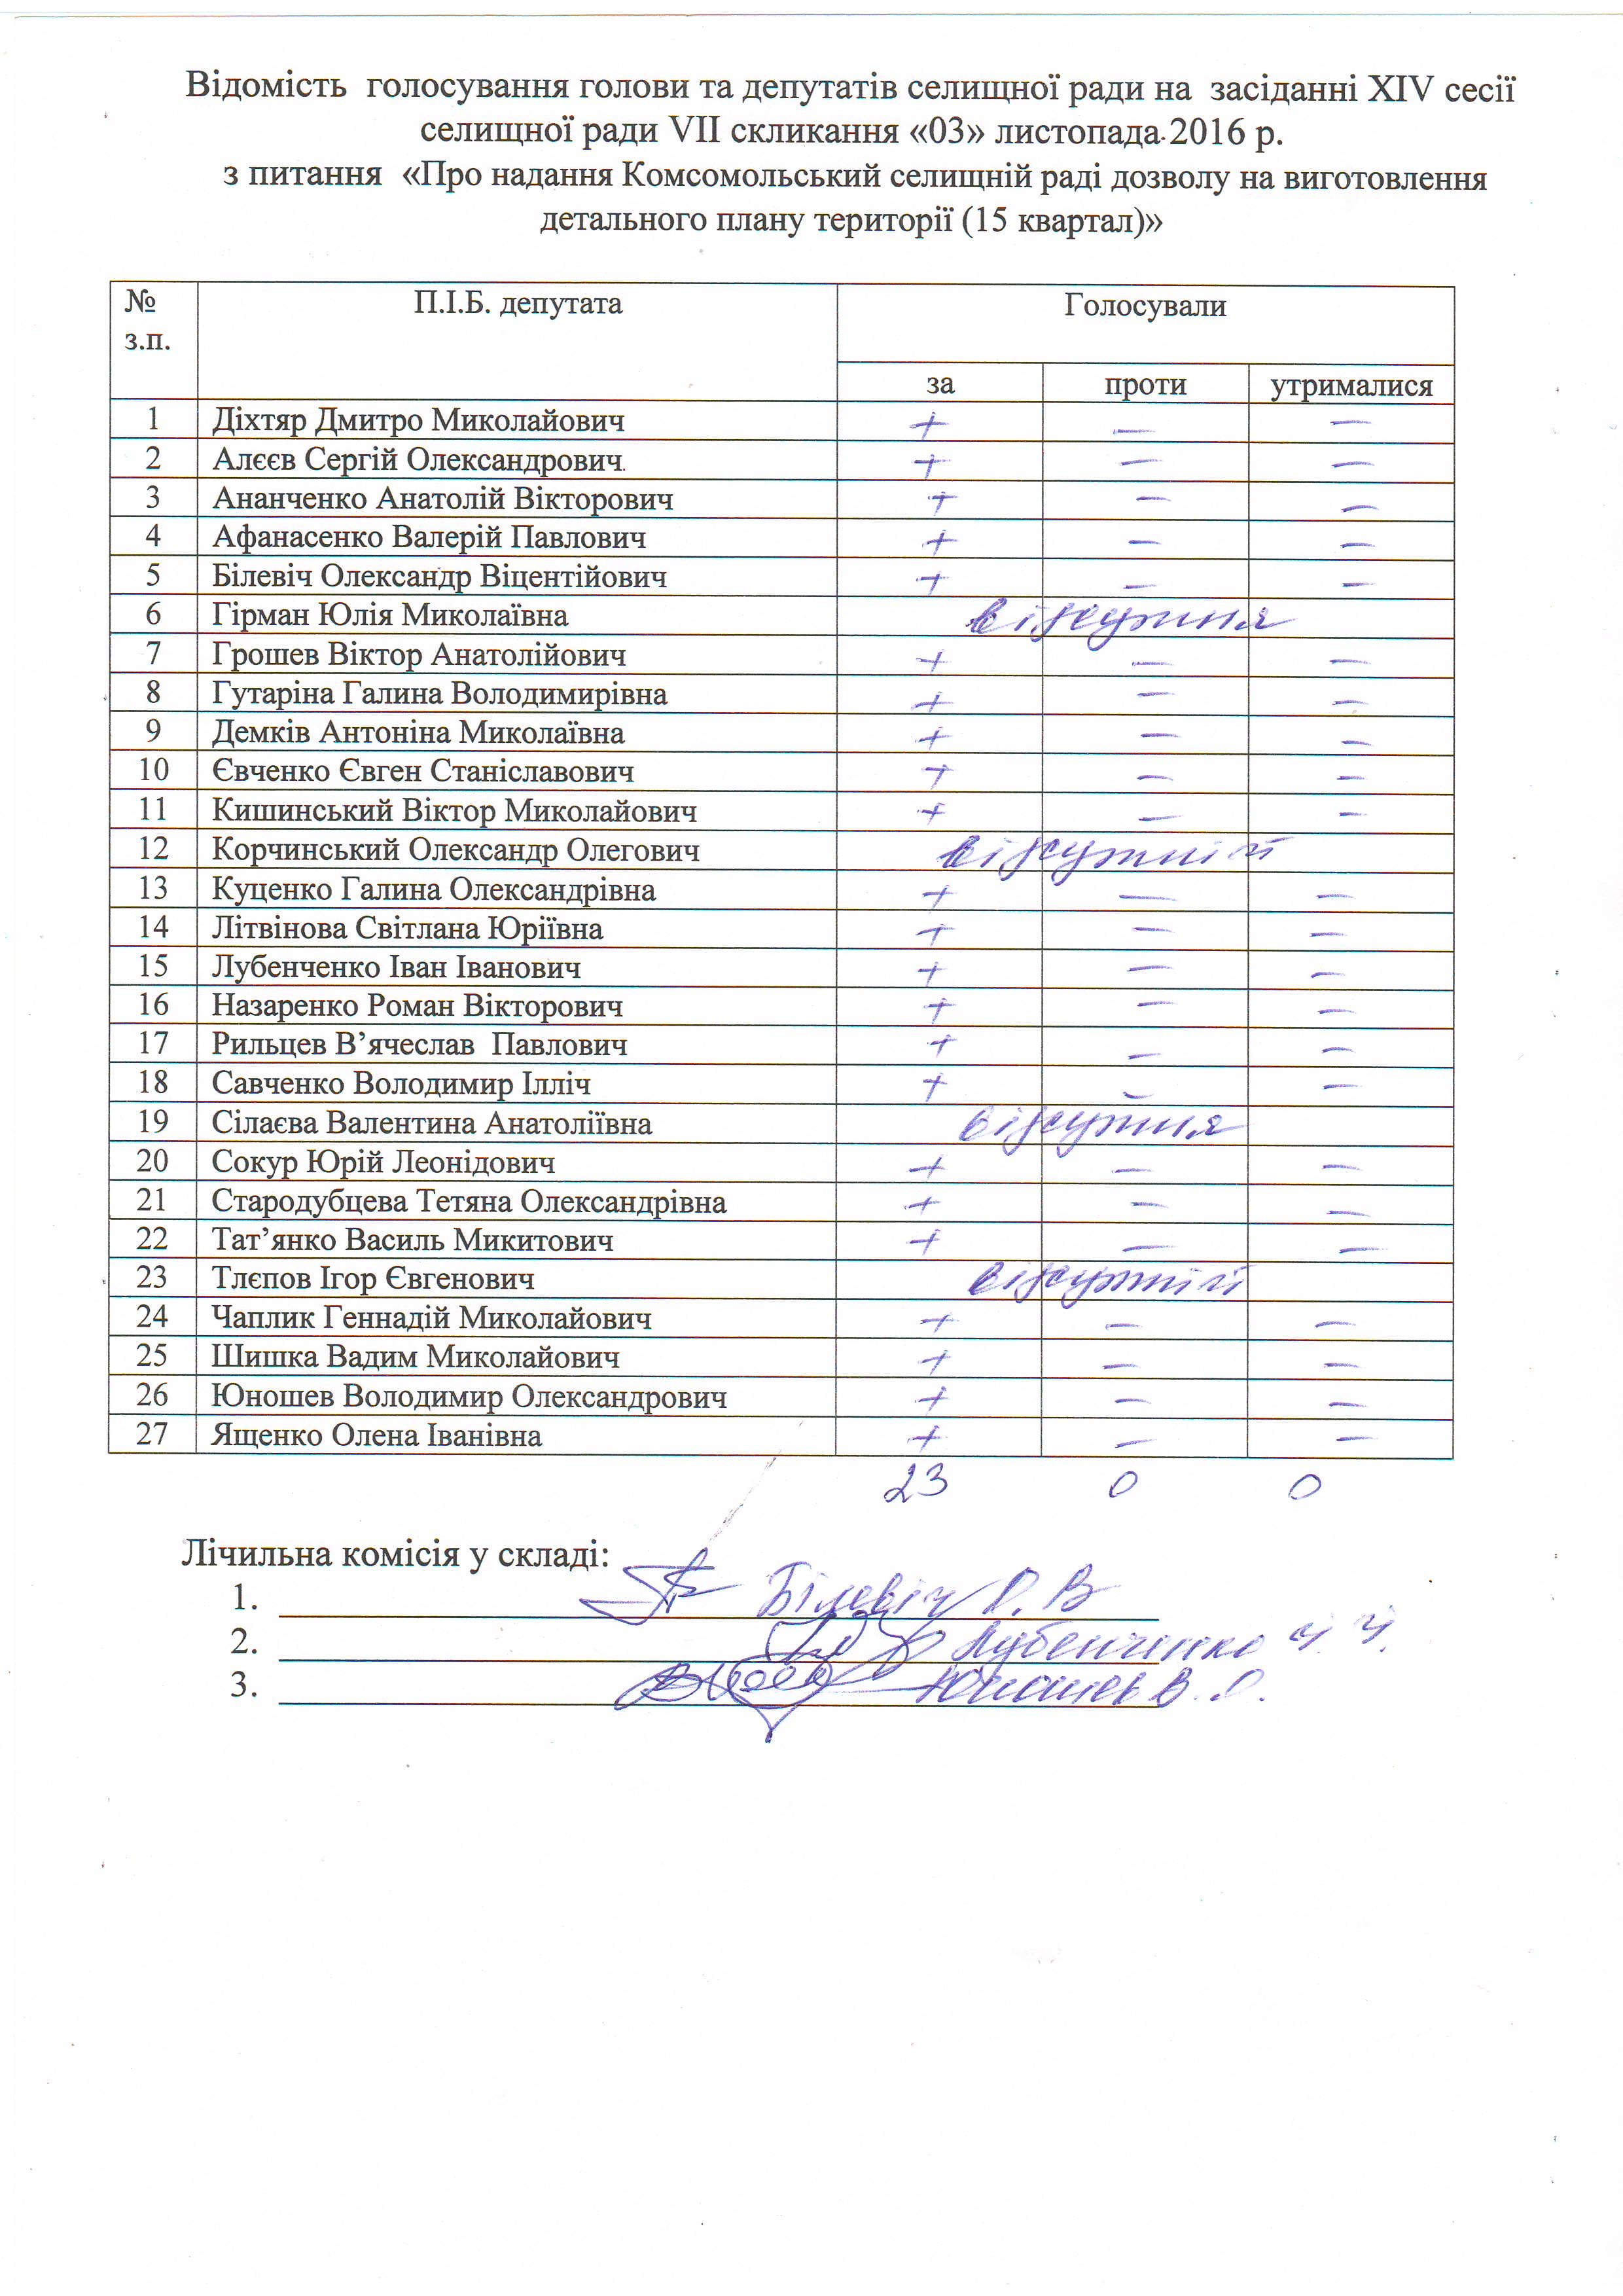 Відомість голосування голови та депутатів селищної ради на засіданні XIV сесії
селищної ради VII скликання «03» листопада 2016 р.
з питання «Про надання Комсомольський селищній раді дозволу на виготовлення
детального плану території (15 квартал)»
№ з.п. П.І.Б. депутата Голосували
за проти утрималися
1 Діхтяр Дмитро Миколайович + – –
2 Алєєв Сергій Олександрович + – –
3 Ананченко Анатолій Вікторович + – –
4 Афанасенко Валерій Павлович + – –
5 Білевіч Олександр Віцентійович + – –
6 Гірман Юлія Миколаївна відсутня
7 Грошев Віктор Анатолійович + – –
8 Гутаріна Галина Володимирівна + – –
9 Демків Антоніна Миколаївна + – –
10 Євченко Євген Станіславович + – –
11 Кишинський Віктор Миколайович + – –
12 Корчинський Олександр Олегович відсутній
13 Куценко Галина Олександрівна + – –
14 Літвінова Світлана Юріївна + – –
15 Лубенченко Іван Іванович + – –
16 Назаренко Роман Вікторович + – –
17 Рильцев В’ячеслав Павлович + – –
18 Савченко Володимир Ілліч + – –
19 Сілаєва Валентина Анатоліївна відсутня
20 Сокур Юрій Леонідович + – –
21 Стародубцева Тетяна Олександрівна + – –
22 Тат’янко Василь Микитович + – –
23 Тлєпов Ігор Євгенович відсутній
24 Чаплик Геннадій Миколайович + – –
25 Шишка Вадим Миколайович + – –
26 Юношев Володимир Олександрович + – –
27 Ященко Олена Іванівна + – –
23 0 0
Лічильна комісія у складі:
1. Білевіч О. В
2. Лубенченко
3. Юношев В. О.